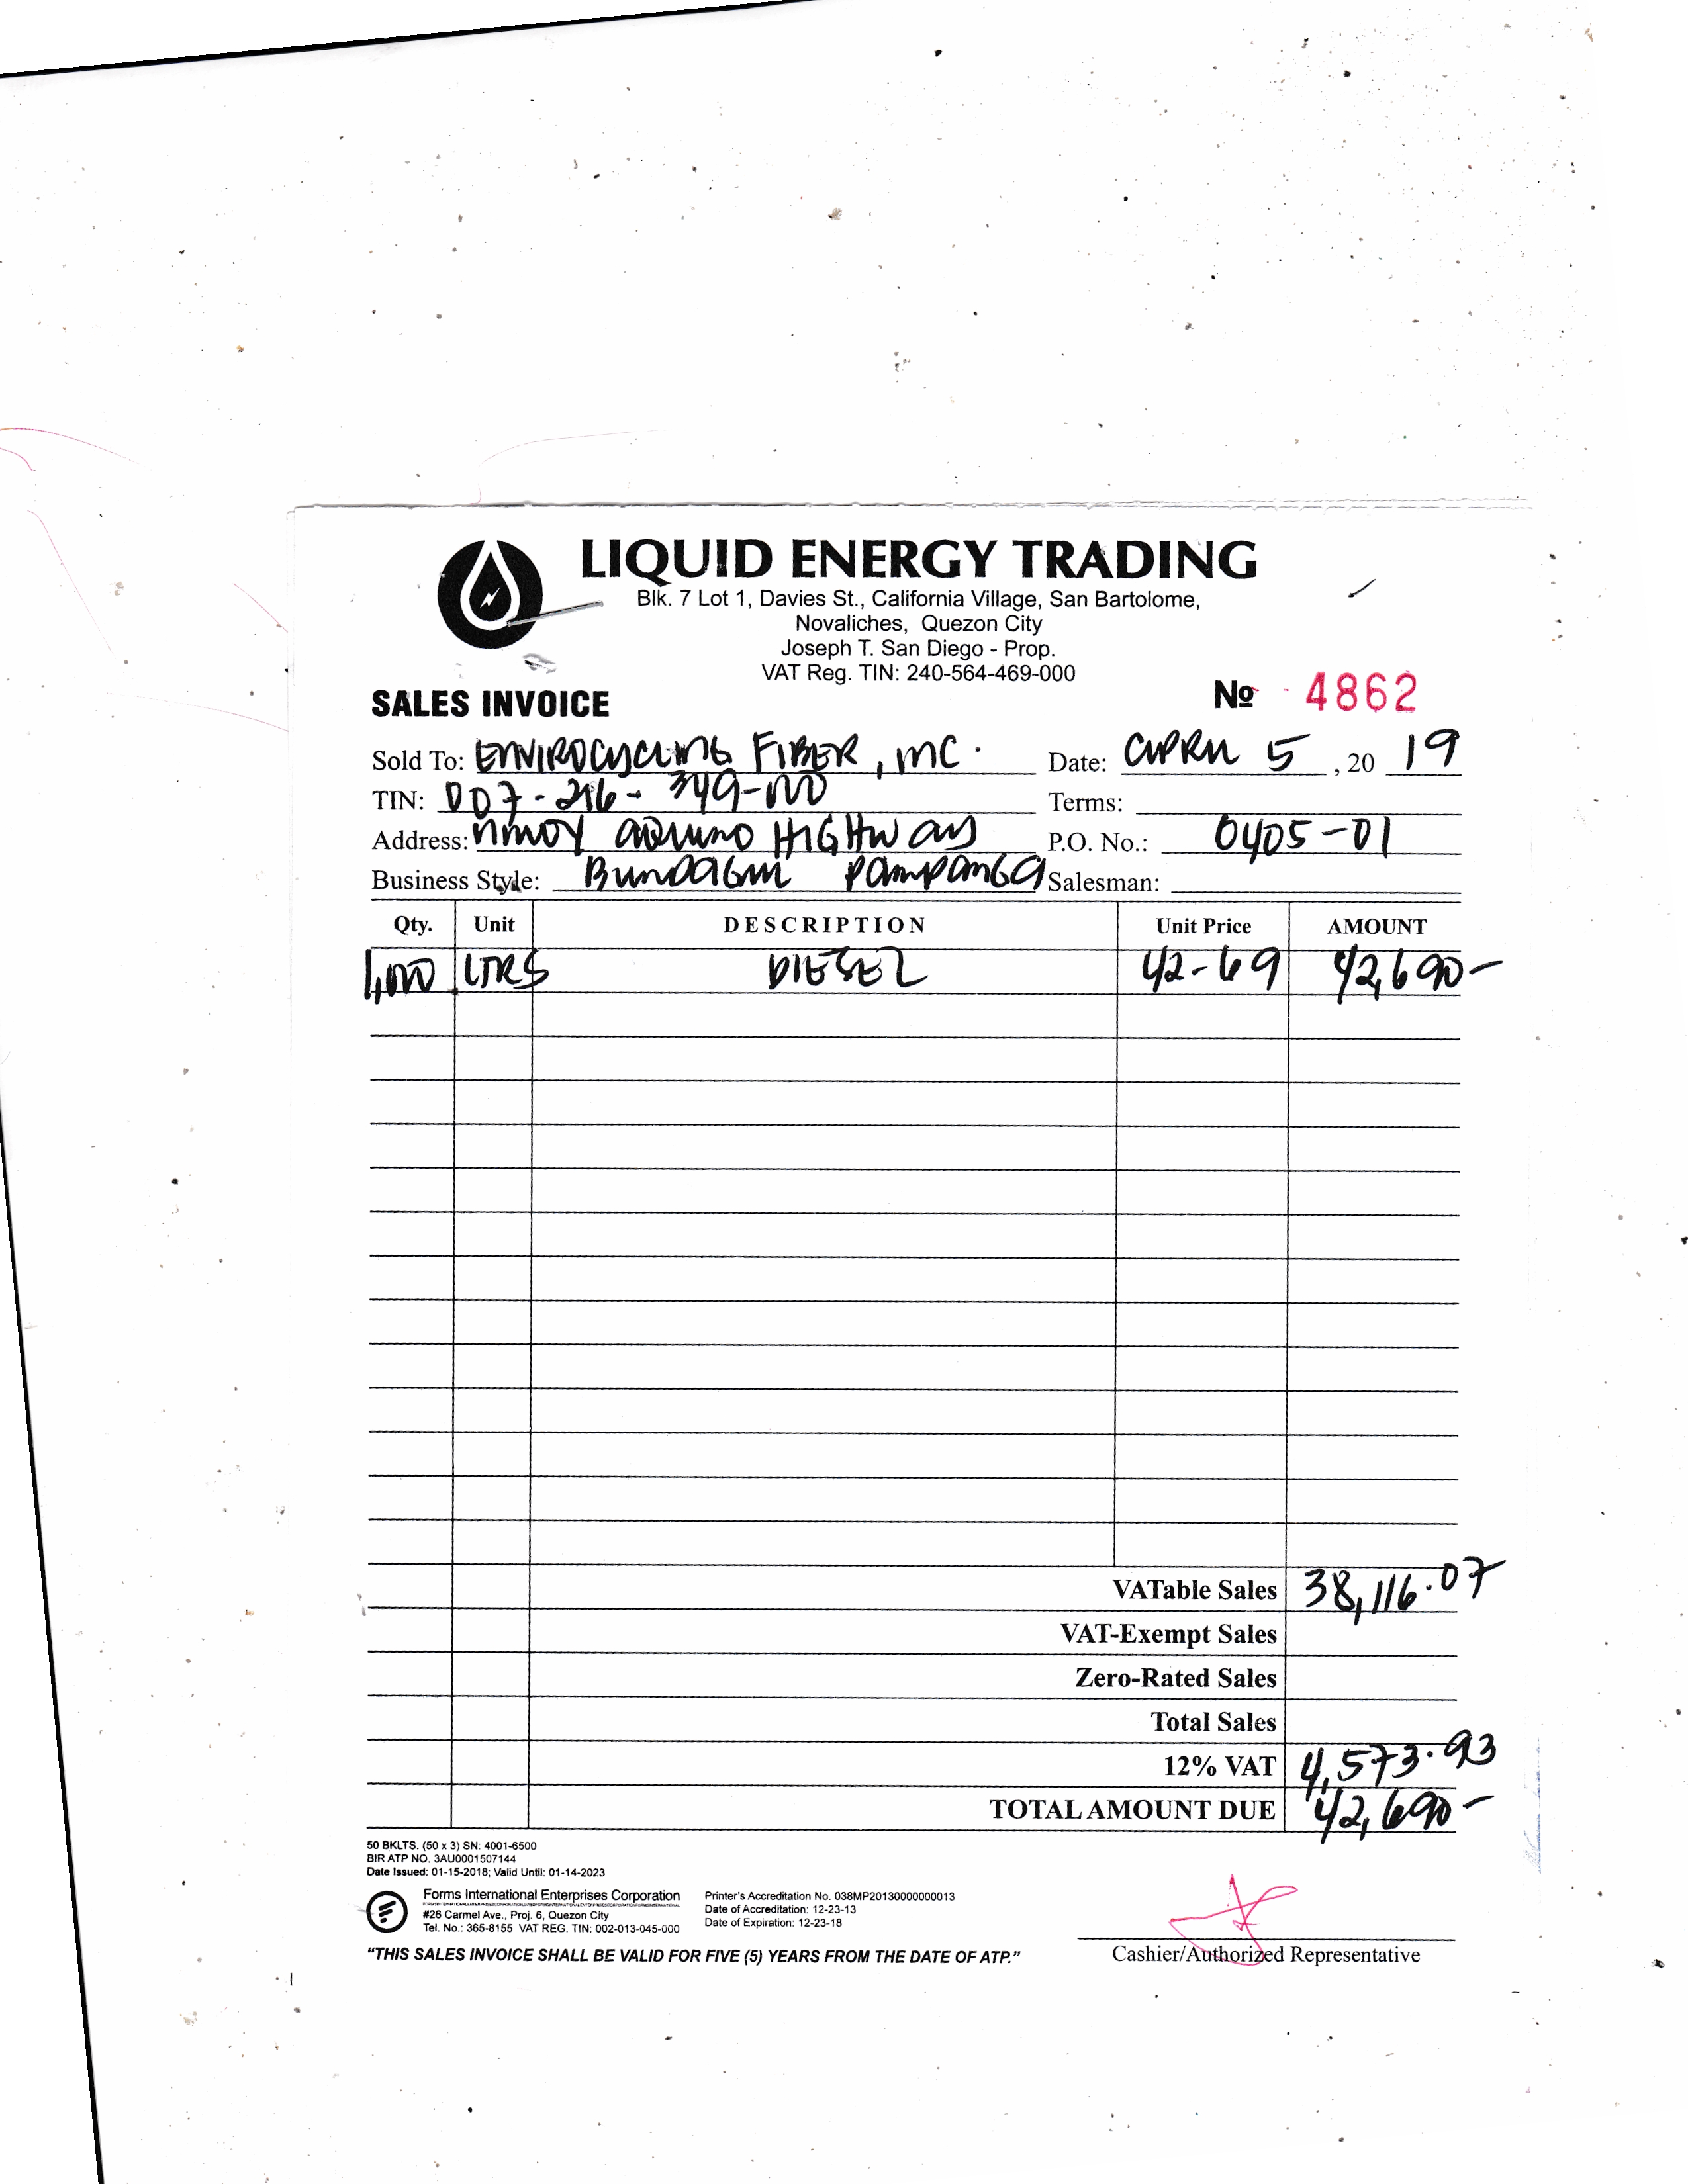 LIQUID ENERGY TRADING
Blk. 7 Lot 1, Davies St., California Village, San Bartolome,
Novaliches, Quezon City
Joseph T. San Diego - Prop.
VAT Reg. TIN: 240-564-469-000
SALES INVOICE
№ 4862
Sold To: ENVIROCYCLING FIBER, INC. Date: APRIL 5, 20 19
TIN: 007-216-349-000 Terms:
Address: NINOY AQUINO HIGHWAY P.O. No.: 0405-01
Business Style: PAMPANGA Salesman:
Qty. Unit DESCRIPTION Unit Price AMOUNT
1,000 LTRS DIESEL 42-69 42,690-
VATable Sales 38,116.07
VAT-Exempt Sales
Zero-Rated Sales
Total Sales
12% VAT 4,573.93
TOTAL AMOUNT DUE 42,690-
50 BKLTS. (50 x 3) SN: 4001-6500
BIR ATP NO. 3AU0001507144
Date Issued: 01-15-2018; Valid Until: 01-14-2023
Forms International Enterprises Corporation
#26 Carmel Ave., Proj. 6, Quezon City
Tel. No.: 365-8155 VAT REG. TIN: 002-013-045-000
Printer's Accreditation No. 038MP20130000000013
Date of Accreditation: 12-23-13
Date of Expiration: 12-23-18
"THIS SALES INVOICE SHALL BE VALID FOR FIVE (5) YEARS FROM THE DATE OF ATP."
Cashier/Authorized Representative